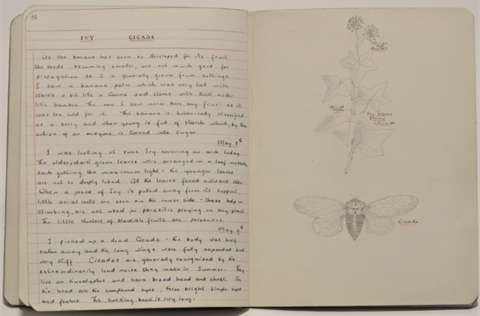 31
IVY CICADA
As the banana has been so developed for its fruit
the seeds, becoming smaller, are not much good for
propagation so it is generally grown from cuttings.
I saw a banana palm which was very tall with
leaves a bit like a Canna and stems with thick nodes
like bamboo. The one I saw never bore any fruit as it
was too cold for it. The banana is botanically classified
as a berry and when young is full of starch which, by the
action of an enzyme is turned into sugar.
May 8th
I was looking at some Ivy covering an arch today.
The older, dark green leaves were arranged in a leaf mosaic
each getting the maximum light - the younger leaves
are not so deeply lobed. All the leaves faced outward also.
When a piece of Ivy is pulled away from its support,
little aerial roots are seen on the inner side - these help in
climbing, are not used for parasitic preying on any plant.
The little clusters of blackish fruits are poisonous.
May 9th
I picked up a dead Cicada - the body was half
eaten away and the long wings were fully expanded and
very stiff. Cicadas are generally recognised by the
extraordinarily loud noise they make in Summer. They
live on Eucalyptus and have broad head and chest. On
the head are two compound eyes, three bright simple eyes
and feelers. The sucking beak is very long.
Cicada